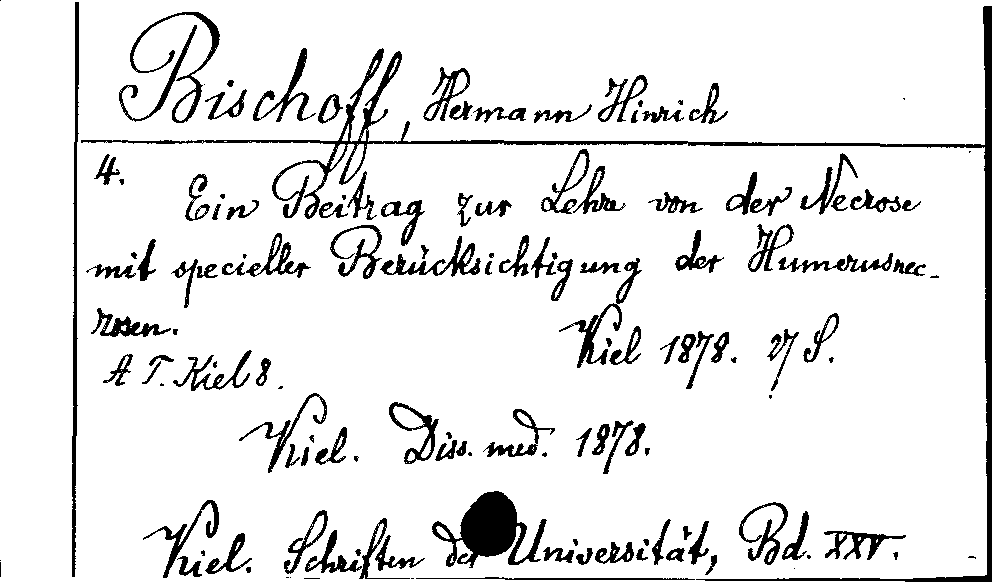 Bischoff, Hermann Hinrich
4.
Ein Beitrag zur Lehre von der Necrose
mit specieller Berücksichtigung der Humerusnec-
rosen.
Kiel 1878. 27 S.
A T. Kiel 8.
Kiel. Diss. med. 1878.
Kiel. Schriften der Universität, Bd. XXV.